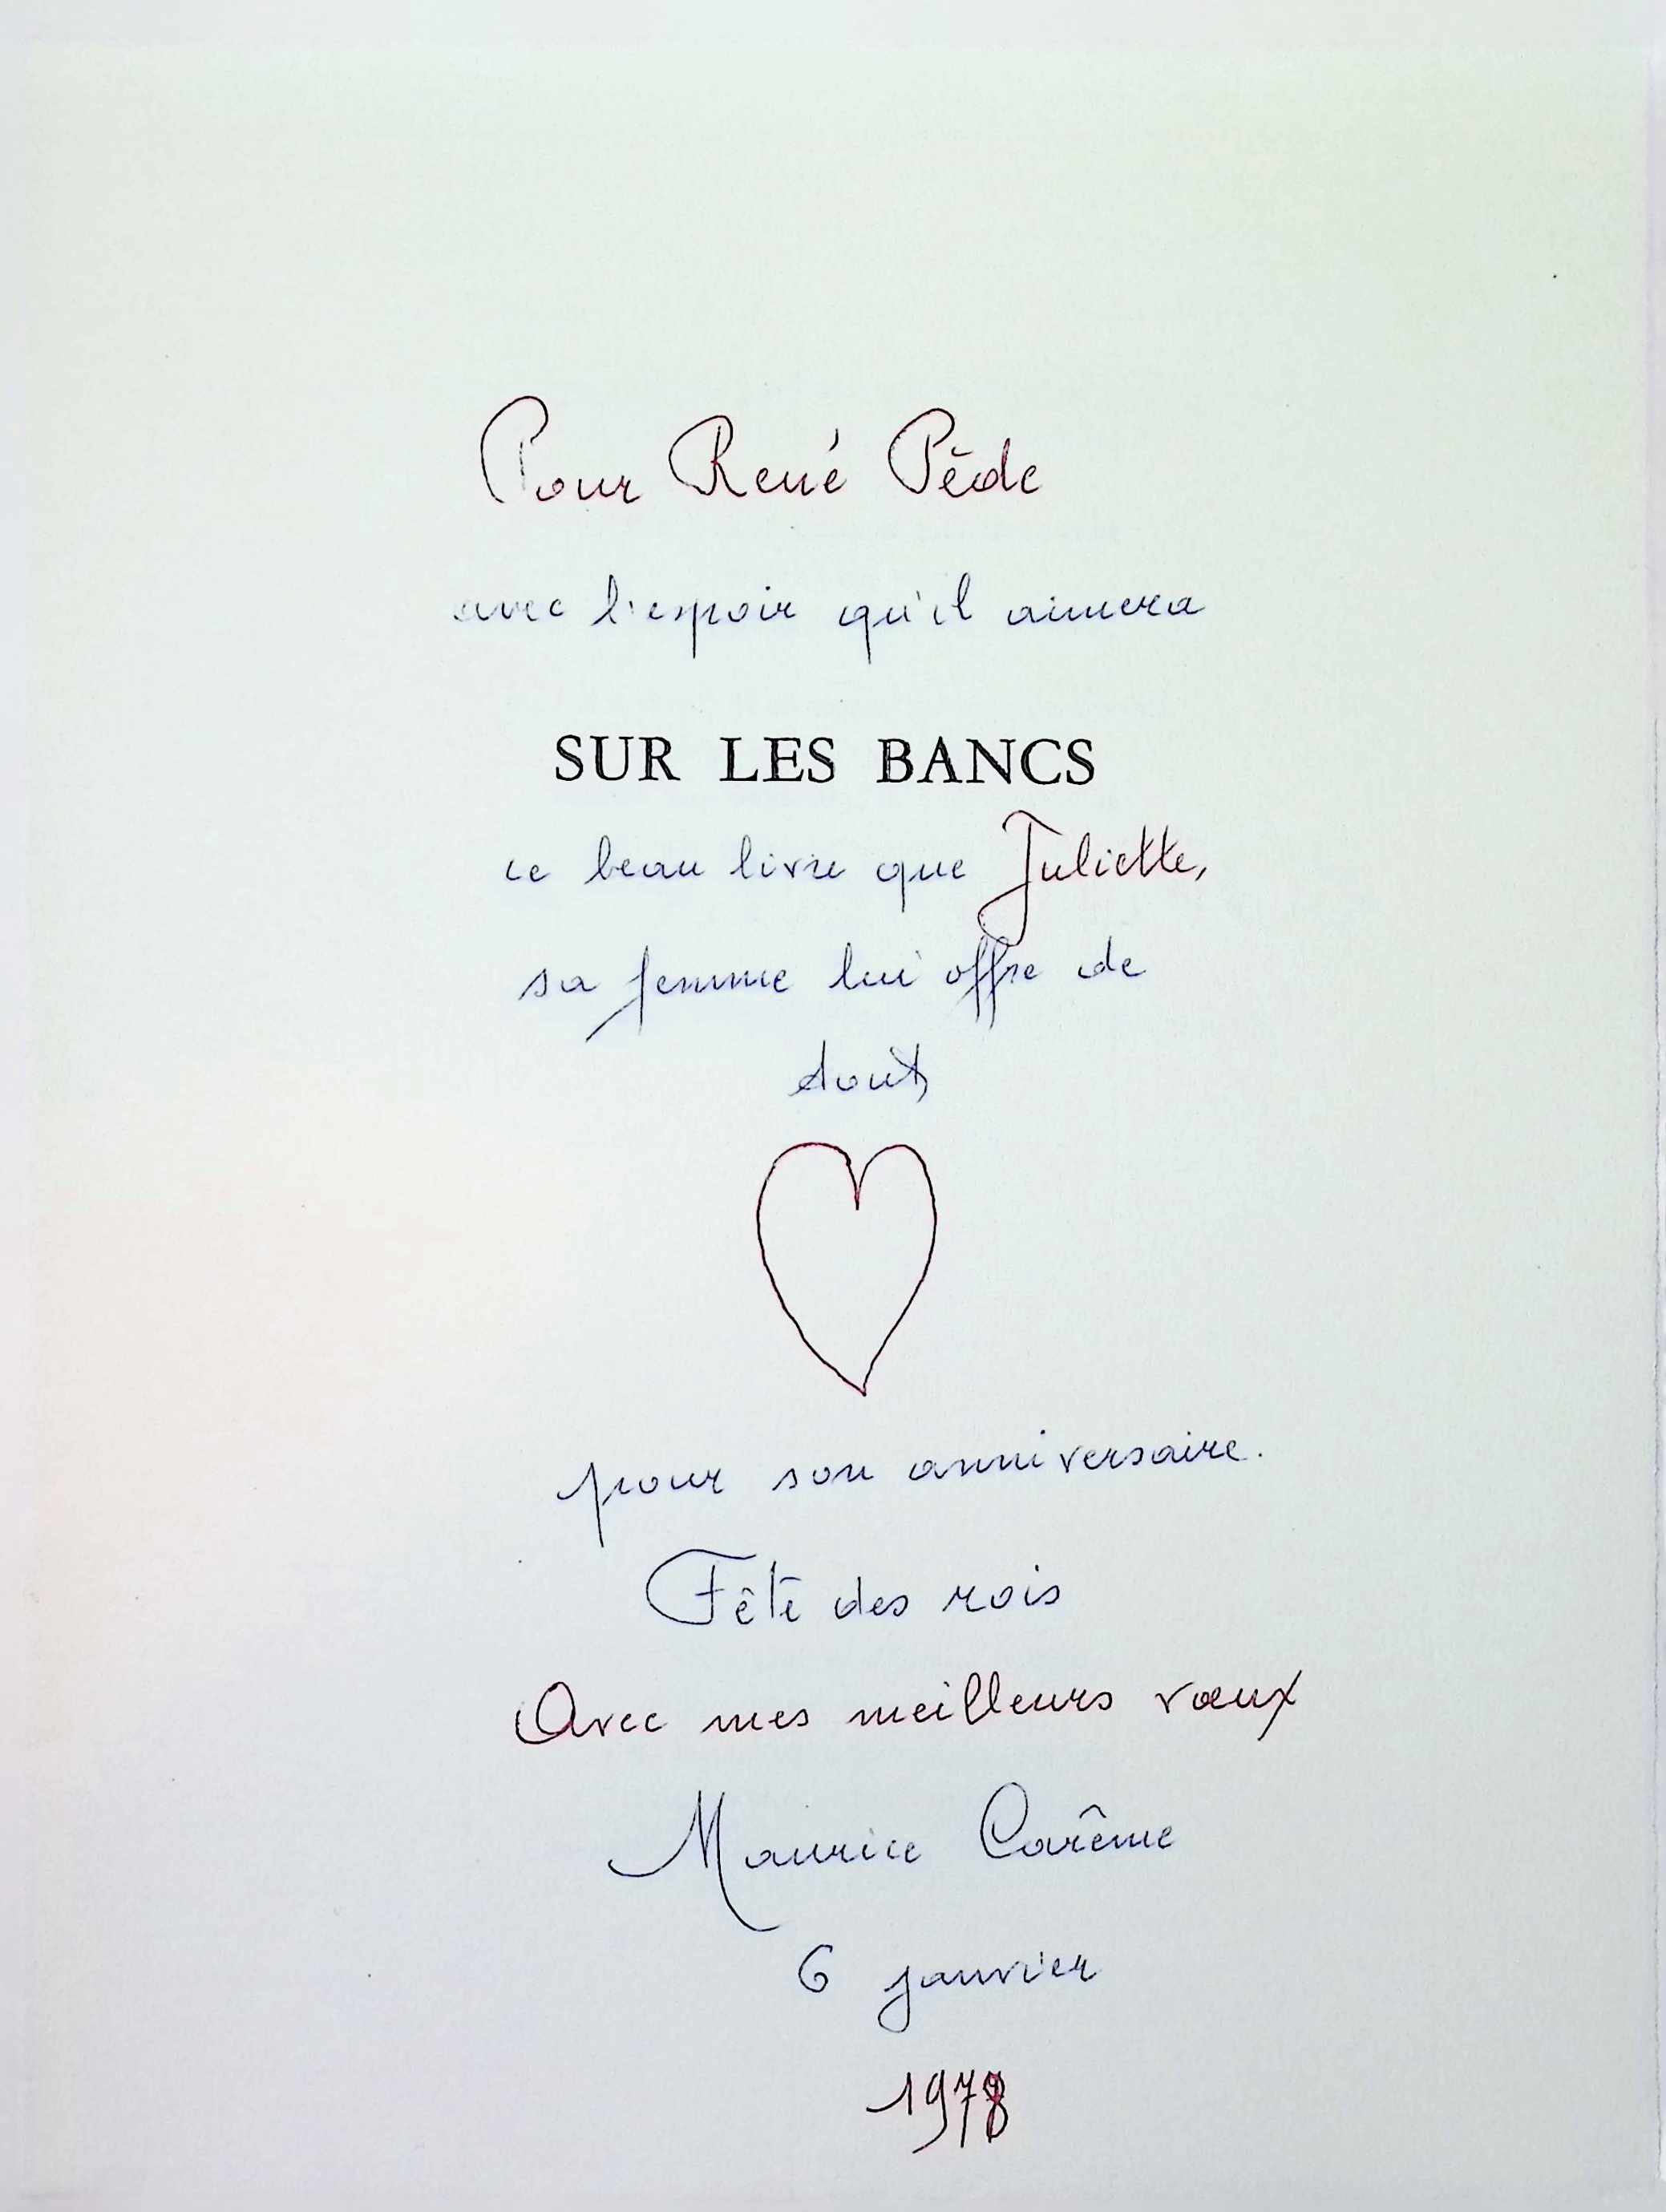 Pour René Pêde
avec l'espoir qu'il aimera
SUR LES BANCS
ce beau livre que Juliette,
sa femme lui offre de
tout
pour son anniversaire.
Fête des rois
Avec mes meilleurs vœux
Maurice Carême
6 janvier
1978